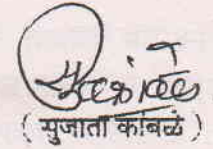 ( सुजाता कांबळे )